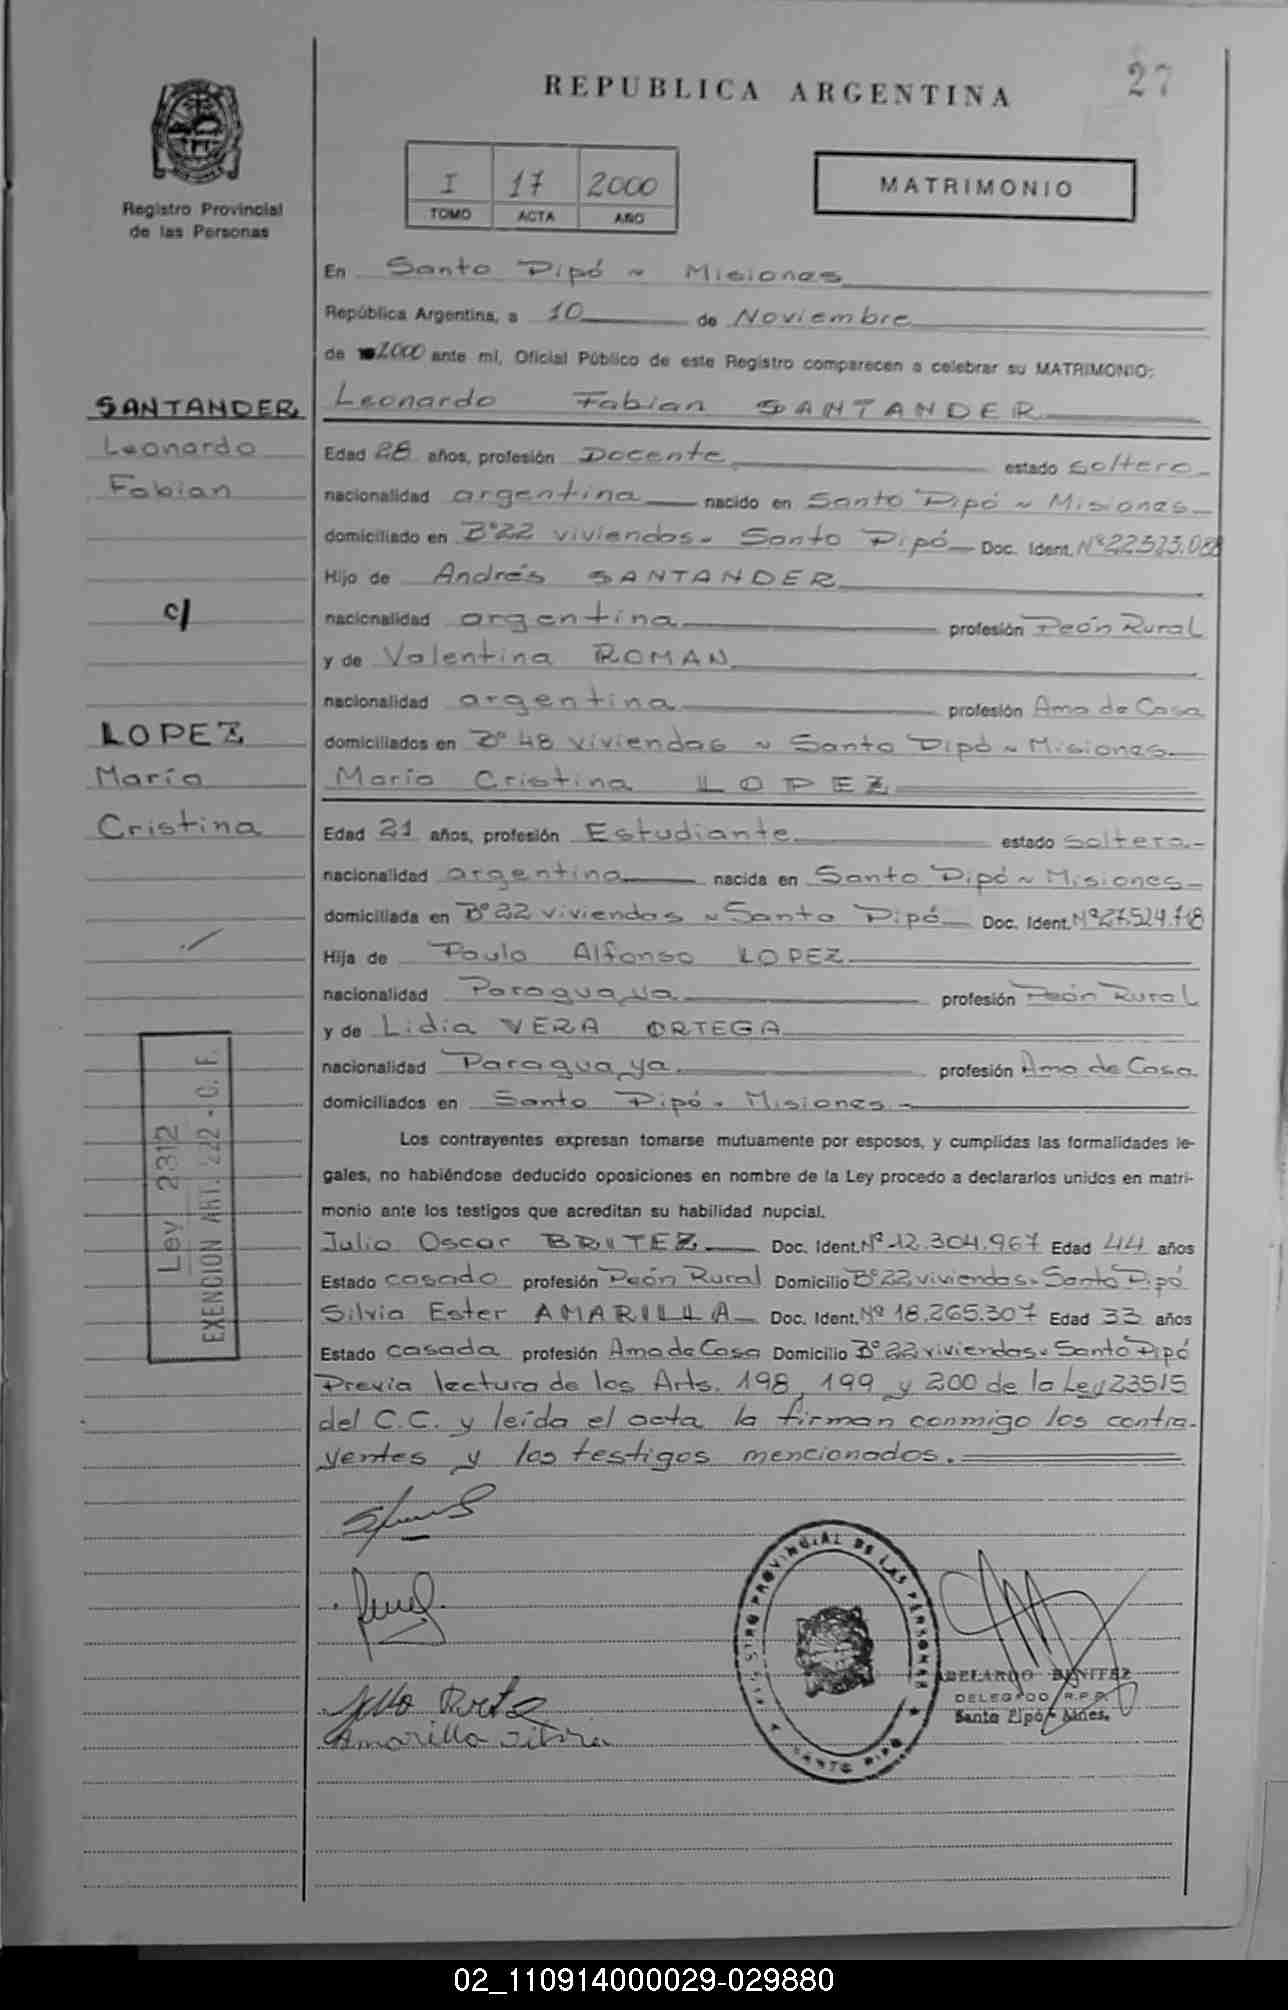 27
REPUBLICA ARGENTINA
Registro Provincial
de las Personas
I 17 2000
TOMO ACTA AÑO
MATRIMONIO
En Santo Pipó ~ Misiones
República Argentina, a 10 de Noviembre
de 2000 ante mí, Oficial Público de este Registro comparecen a celebrar su MATRIMONIO:
SANTANDER
Leonardo
Fabian
c/
LOPEZ
María
Cristina
Leonardo Fabian SANTANDER
Edad 28 años, profesión Docente estado soltero
nacionalidad argentina nacido en Santo Pipó ~ Misiones
domiciliado en B° 22 viviendas ~ Santo Pipó Doc. Ident. N°
Hijo de Andrés SANTANDER
nacionalidad argentina profesión Peón Rural
y de Valentina ROMAN
nacionalidad argentina profesión Ama de Casa
domiciliados en B° 48 viviendas ~ Santo Pipó ~ Misiones
María Cristina LOPEZ
Edad 21 años, profesión Estudiante estado soltera
nacionalidad argentina nacida en Santo Pipó ~ Misiones
domiciliada en B° 22 viviendas ~ Santo Pipó Doc. Ident. N°
Hija de Paulo Alfonso LOPEZ
nacionalidad Paraguaya profesión Peón Rural
y de Lidia VERA ORTEGA
nacionalidad Paraguaya profesión Ama de Casa
domiciliados en Santo Pipó - Misiones
Los contrayentes expresan tomarse mutuamente por esposos, y cumplidas las formalidades le-
gales, no habiéndose deducido oposiciones en nombre de la Ley procedo a declararlos unidos en matri-
monio ante los testigos que acreditan su habilidad nupcial.
Julio Oscar BRITEZ Doc. Ident. N° 12.304.967 Edad 44 años
Estado casado profesión Peón Rural Domicilio B° 22 viviendas ~ Santo Pipó
Silvia Ester AMARILLA Doc. Ident. N° 18.265.307 Edad 33 años
Estado casada profesión Ama de Casa Domicilio B° 22 viviendas ~ Santo Pipó
Previa lectura de los Arts. 198, 199 y 200 de la Ley 23515
del C.C. y leída el acta la firman conmigo los contra-
yentes y los testigos mencionados.
Ley 2312
EXENCION ART. 222 - C. F.
Amarilla Silvia
REGISTRO PROVINCIAL DE LAS PERSONAS
SANTO PIPO
ABELARDO BENITEZ
DELEGADO R.P.P.
Santo Pipó - Mnes.
02_110914000029-029880